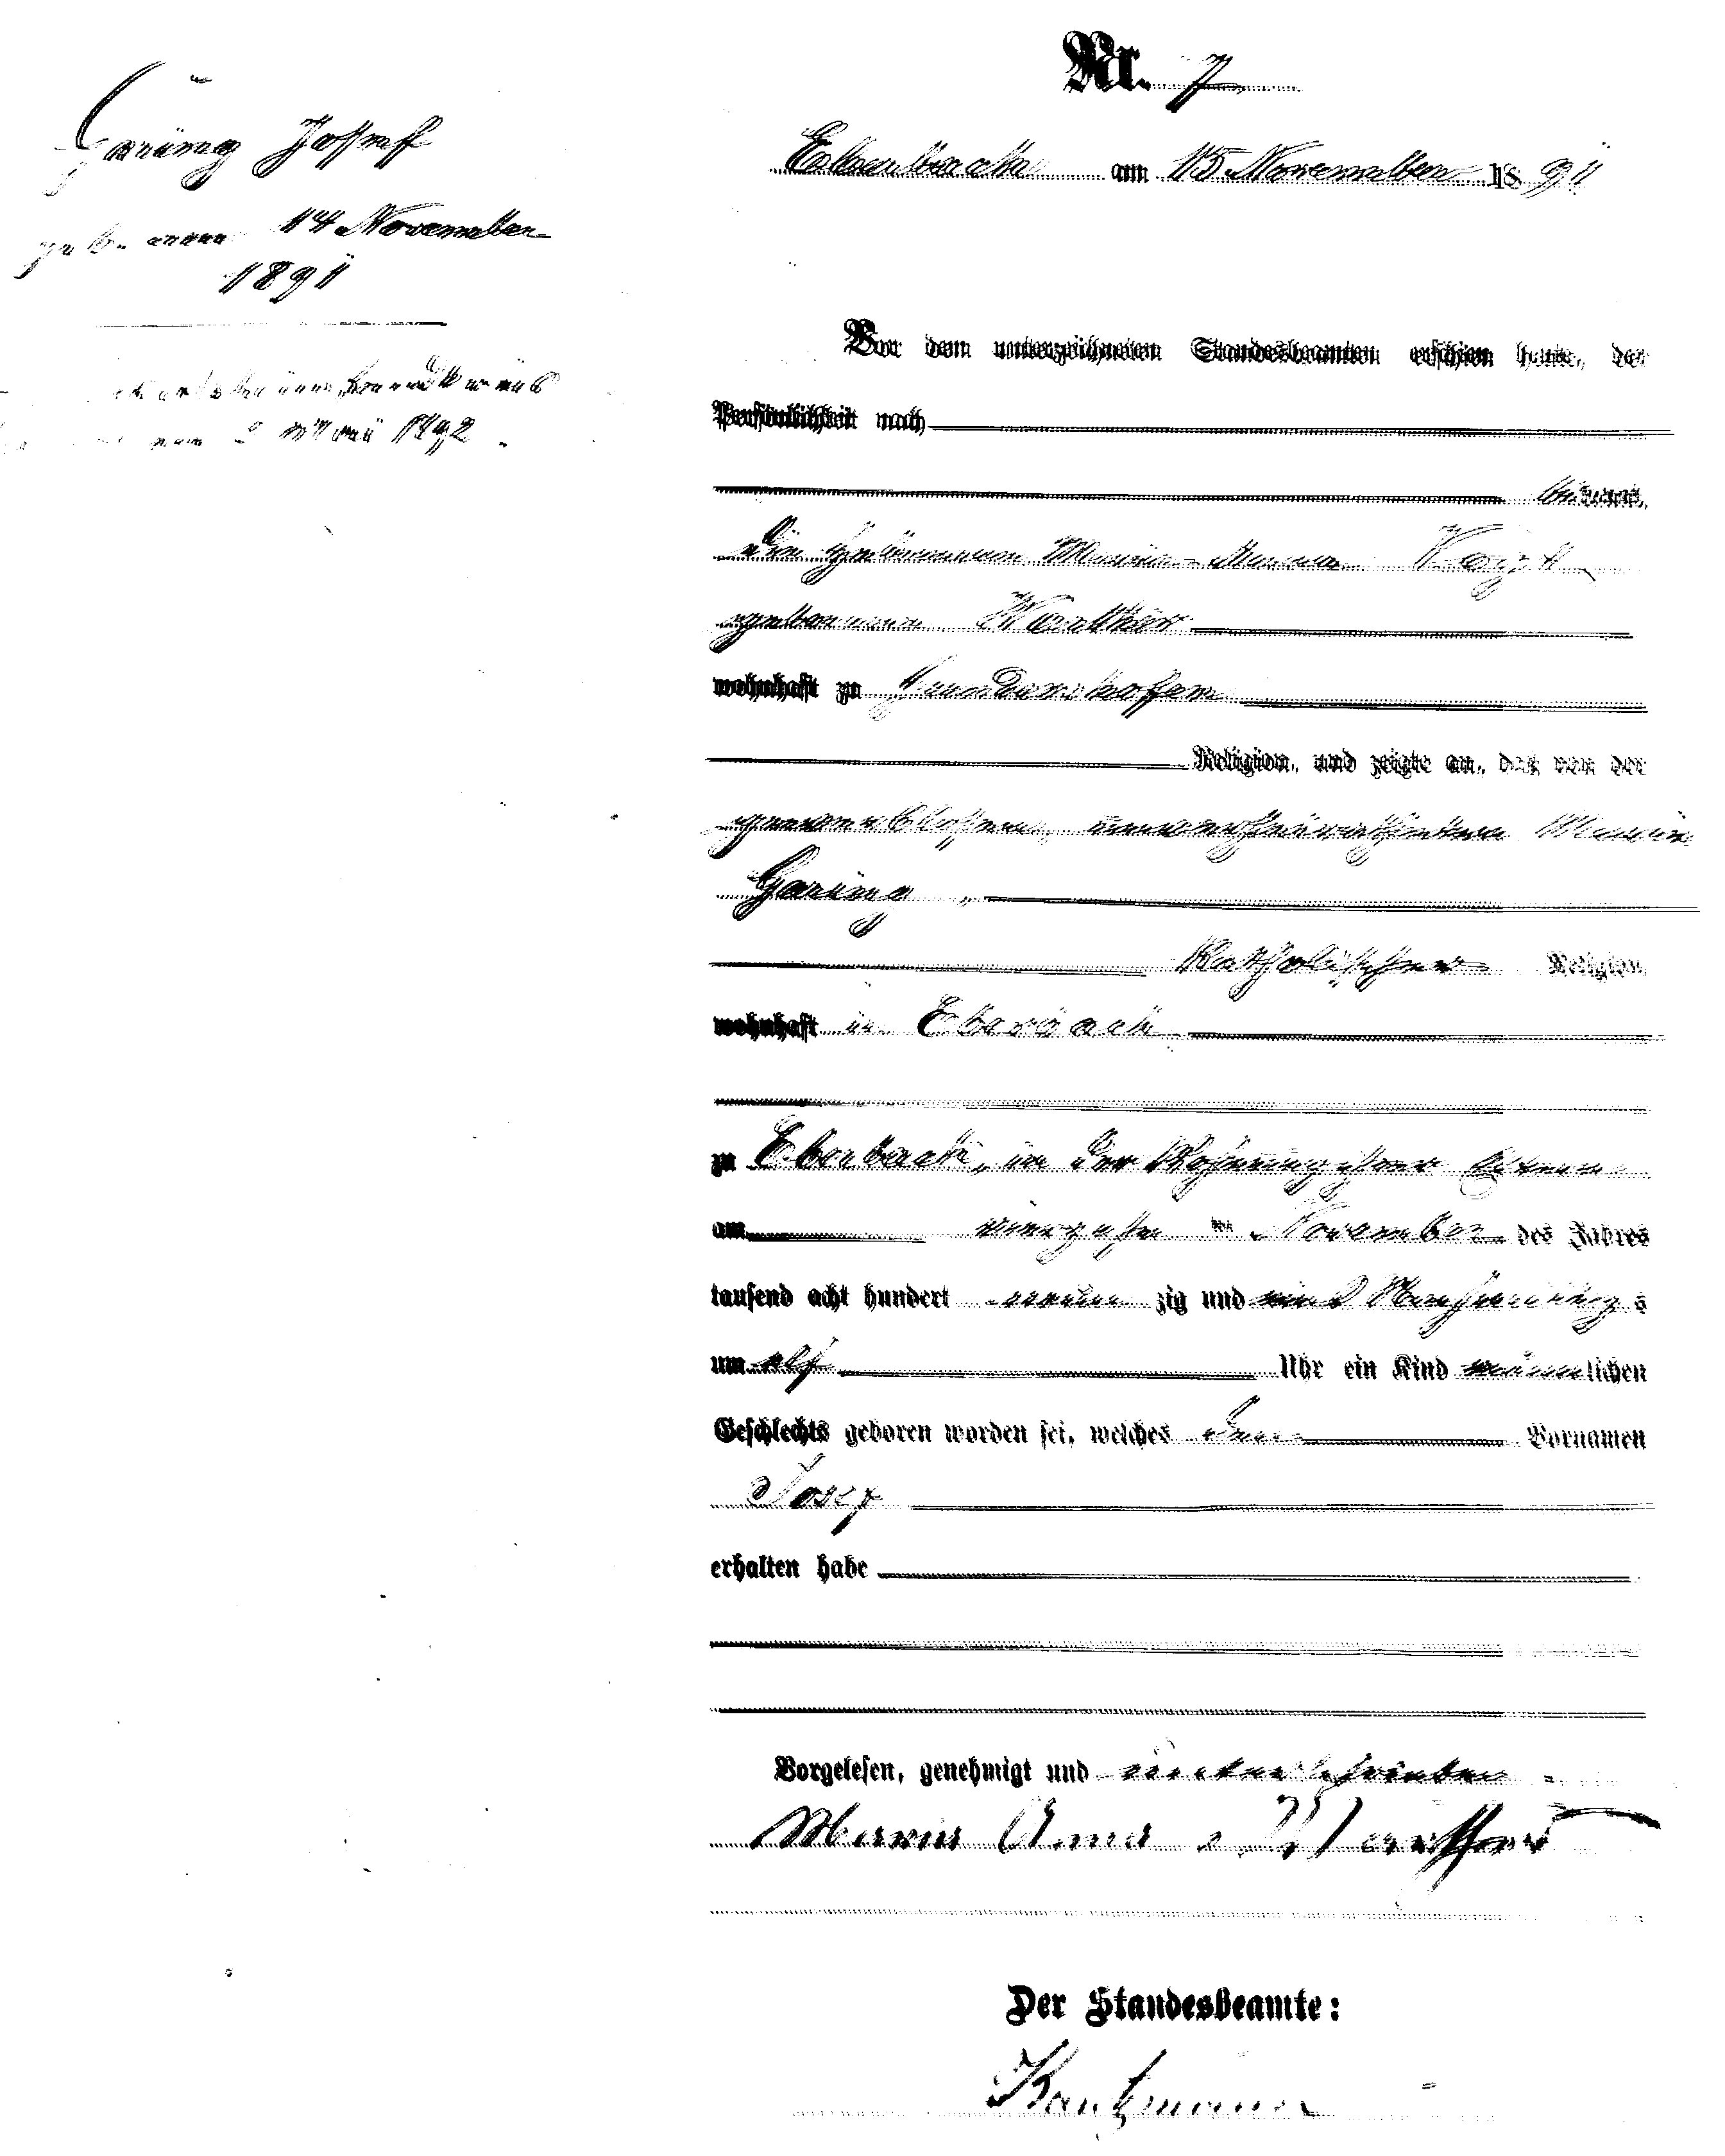 Nr. 7
Göring Josef
geboren 14 November
1891
1892
Eberbach am 15 November 1891
Vor dem unterzeichneten Standesbeamten erschien heute, der
Persönlichkeit nach
bekannt,
die Hebamme Maria-Anna Vogt
geborene Walther
wohnhaft zu Gundershofen
Religion, und zeigte an, daß von der
gewerblosen, unverheiratheten Maria
Göring,
Katholischer Religion
wohnhaft in Eberbach
zu Eberbach, in der Wohnung ihrer Eltern
am vierzehn ten November des Jahres
tausend acht hundert neun zig und eins Nachmittags
um elf Uhr ein Kind männlichen
Geschlechts geboren worden sei, welches den Vornamen
Josef
erhalten habe
Vorgelesen, genehmigt und unterschrieben
Maria Anna Walther
Der Standesbeamte: